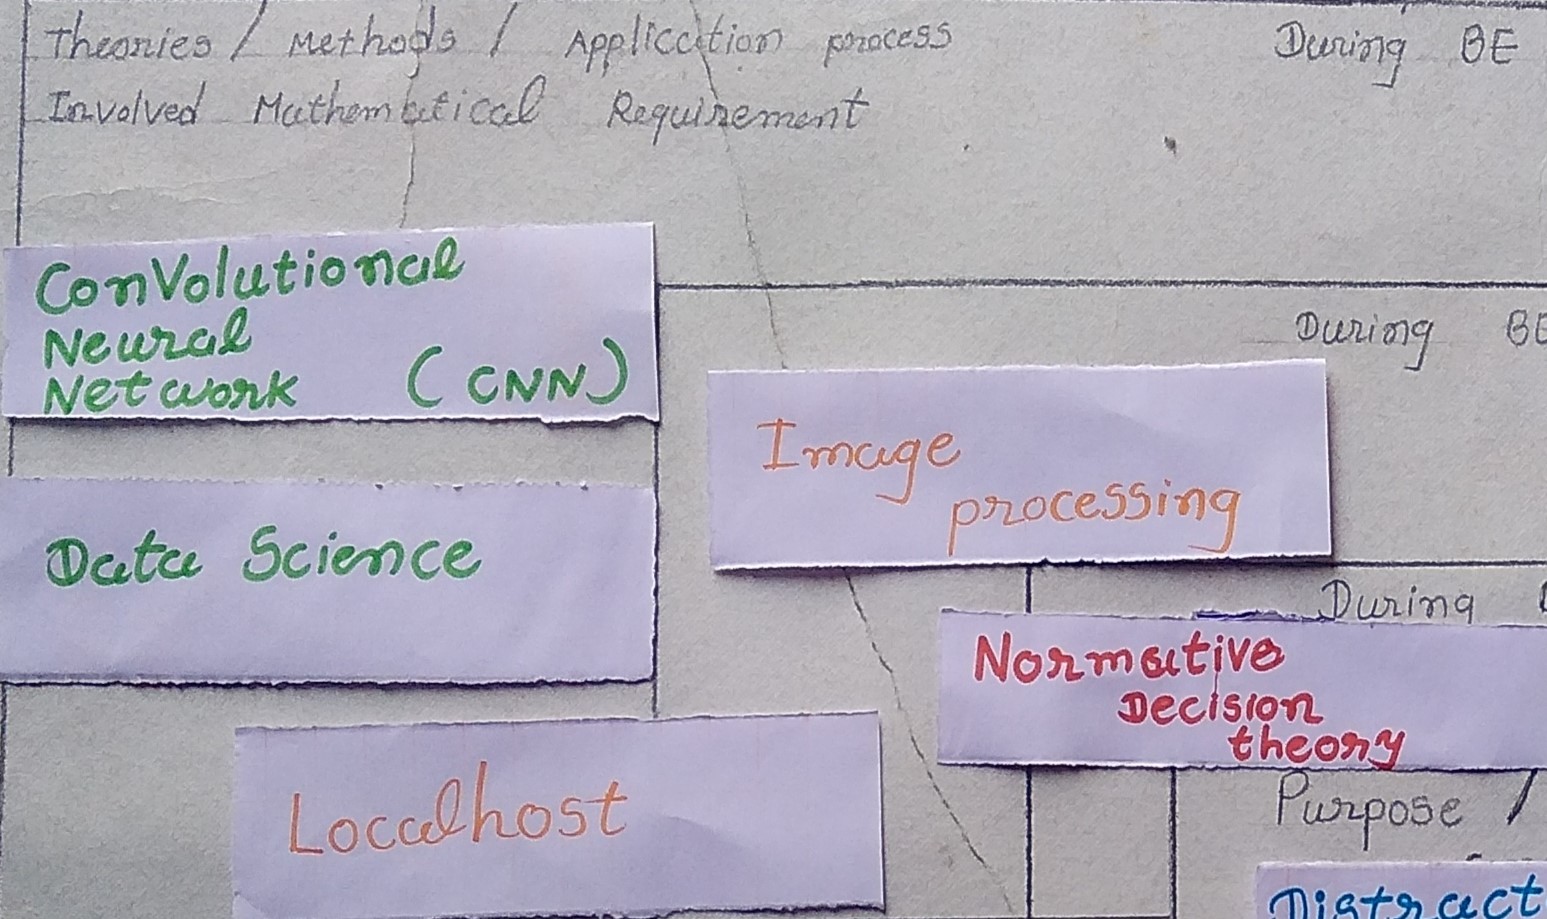 Theories / Methods / Application process
During BE
Involved Mathematical Requirement
ConVolutional
Neural
Network (CNN)
During BE
Image
processing
Data Science
During
Normative
Decision
theory
Localhost
Purpose /
Distract